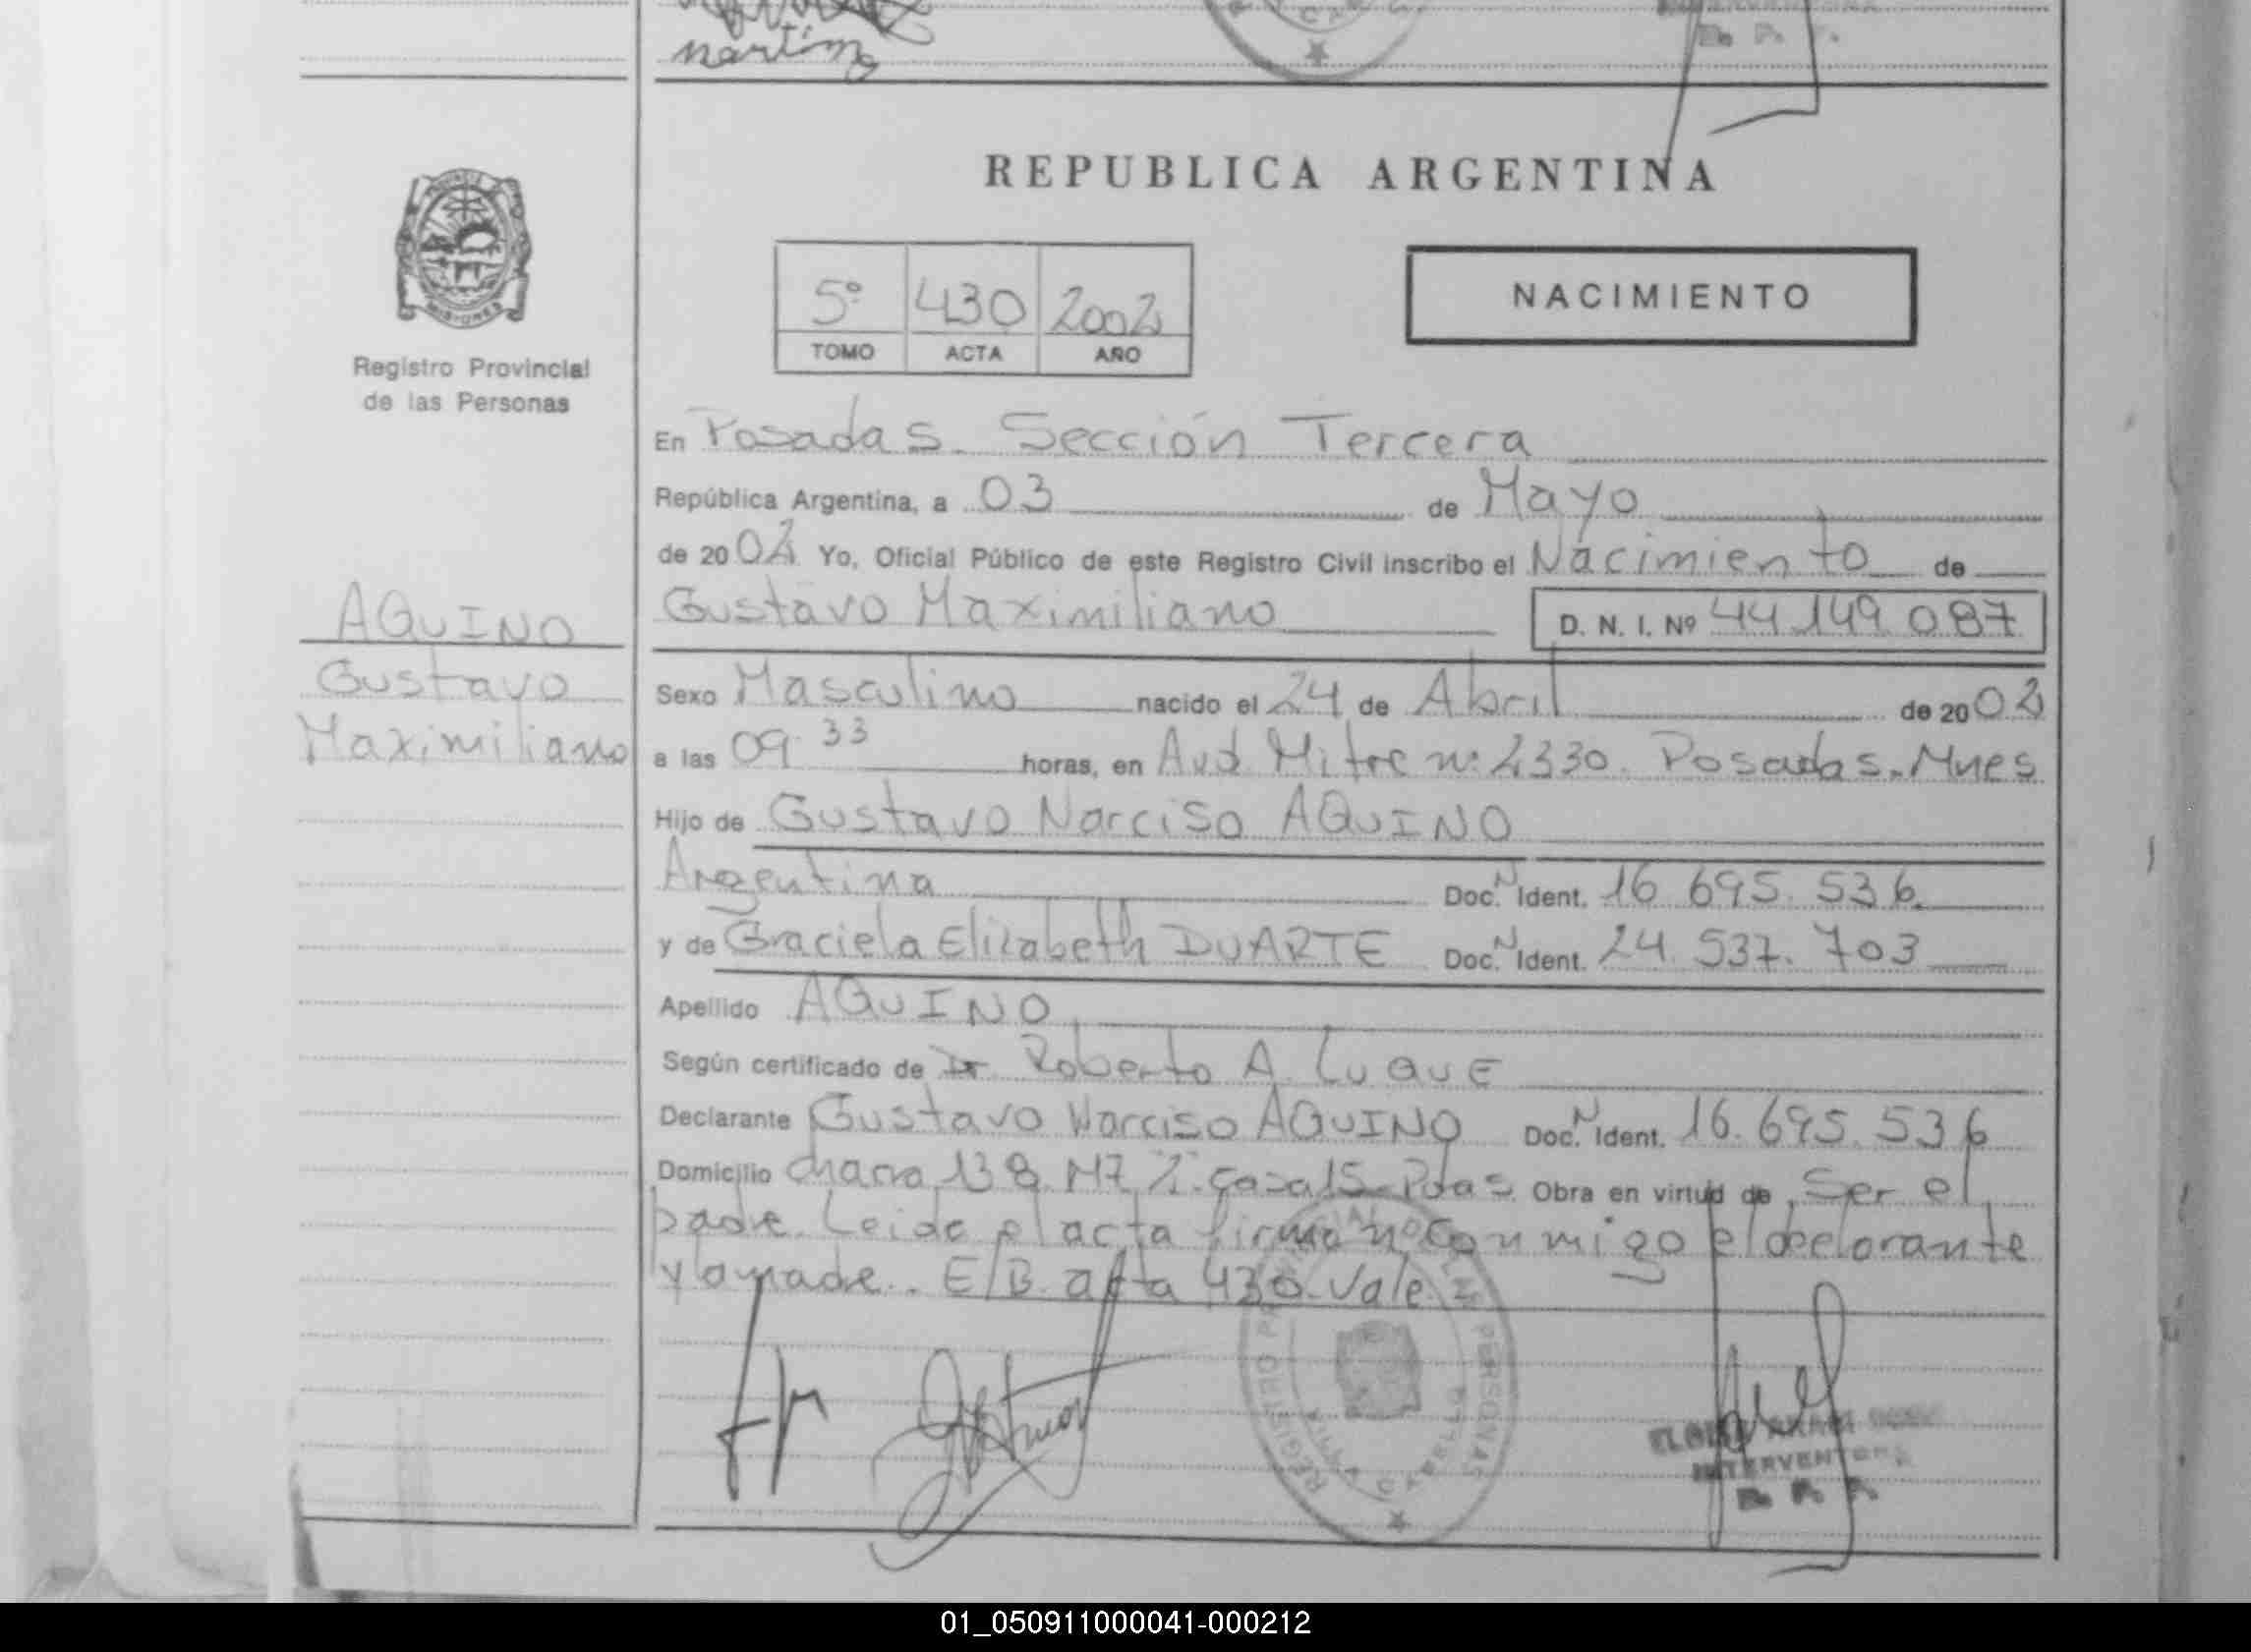 martinez
REPUBLICA ARGENTINA
MISIONES
Registro Provincial
de las Personas
5º 430 2002
TOMO ACTA AÑO
NACIMIENTO
En Posadas. Sección Tercera
República Argentina, a 03 de Mayo
de 2002 Yo, Oficial Público de este Registro Civil inscribo el Nacimiento de
Gustavo Maximiliano D. N. I. Nº 44.149.087
AQUINO
Gustavo
Maximiliano
Sexo Masculino nacido el 24 de Abril de 2002
a las 09:33 horas, en Avd Mitre nº 2330. Posadas. Mnes
Hijo de Gustavo Narciso AQUINO
Argentina Doc. N Ident. 16.695.536.
y de Graciela Elizabeth DUARTE Doc. N Ident. 24.537.703
Apellido AQUINO
Según certificado de Dr. Roberto A. LUQUE
Declarante Gustavo Narciso AQUINO Doc. N Ident. 16.695.536
Domicilio Chacra 138 M7 casa 15 Pdas Obra en virtud de Ser el
padre. Leida el acta firma conmigo el declarante
y la madre. E/B. acta 430. Vale.
REGISTRO PROVINCIAL DE LAS PERSONAS
VILLA CABELLO
INTERVENTORA
R. P. P.
01_050911000041-000212